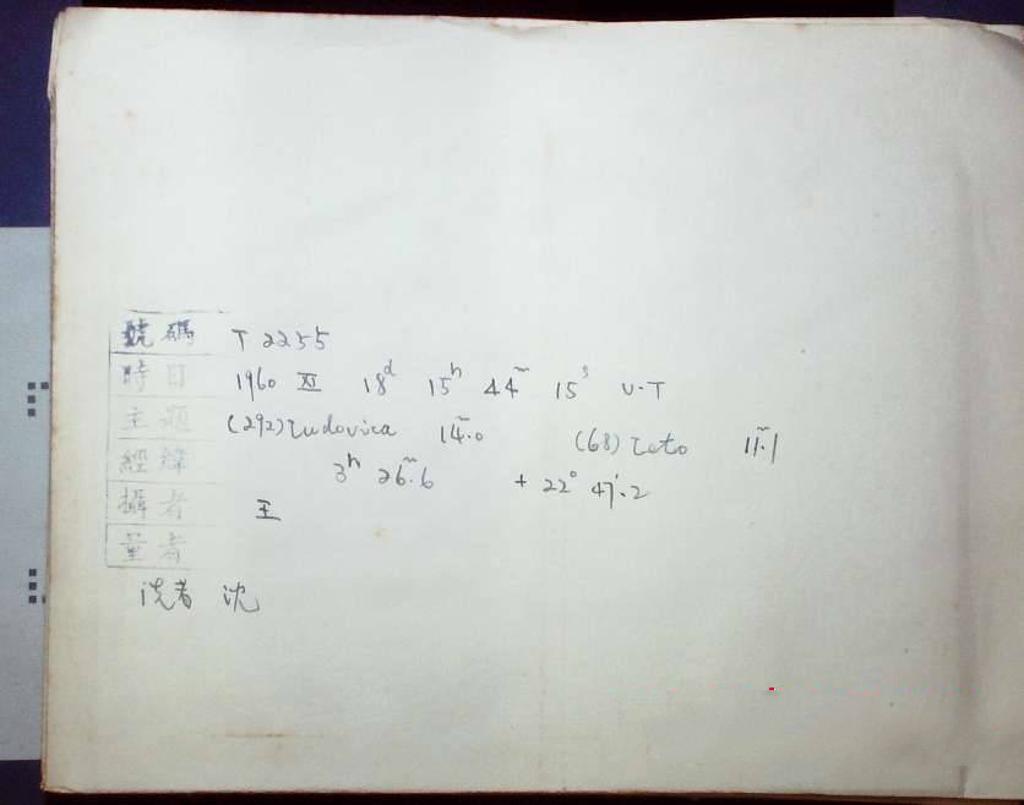 號碼 T 2255
時日 1960 XI 18d 15h 44m 15s U.T
主題 (292) Ludovica 14m.0 (68) Leto 11m.1
經緯 3h 26m.6 + 22° 47'.2
攝者 王
量者
洗者 沈